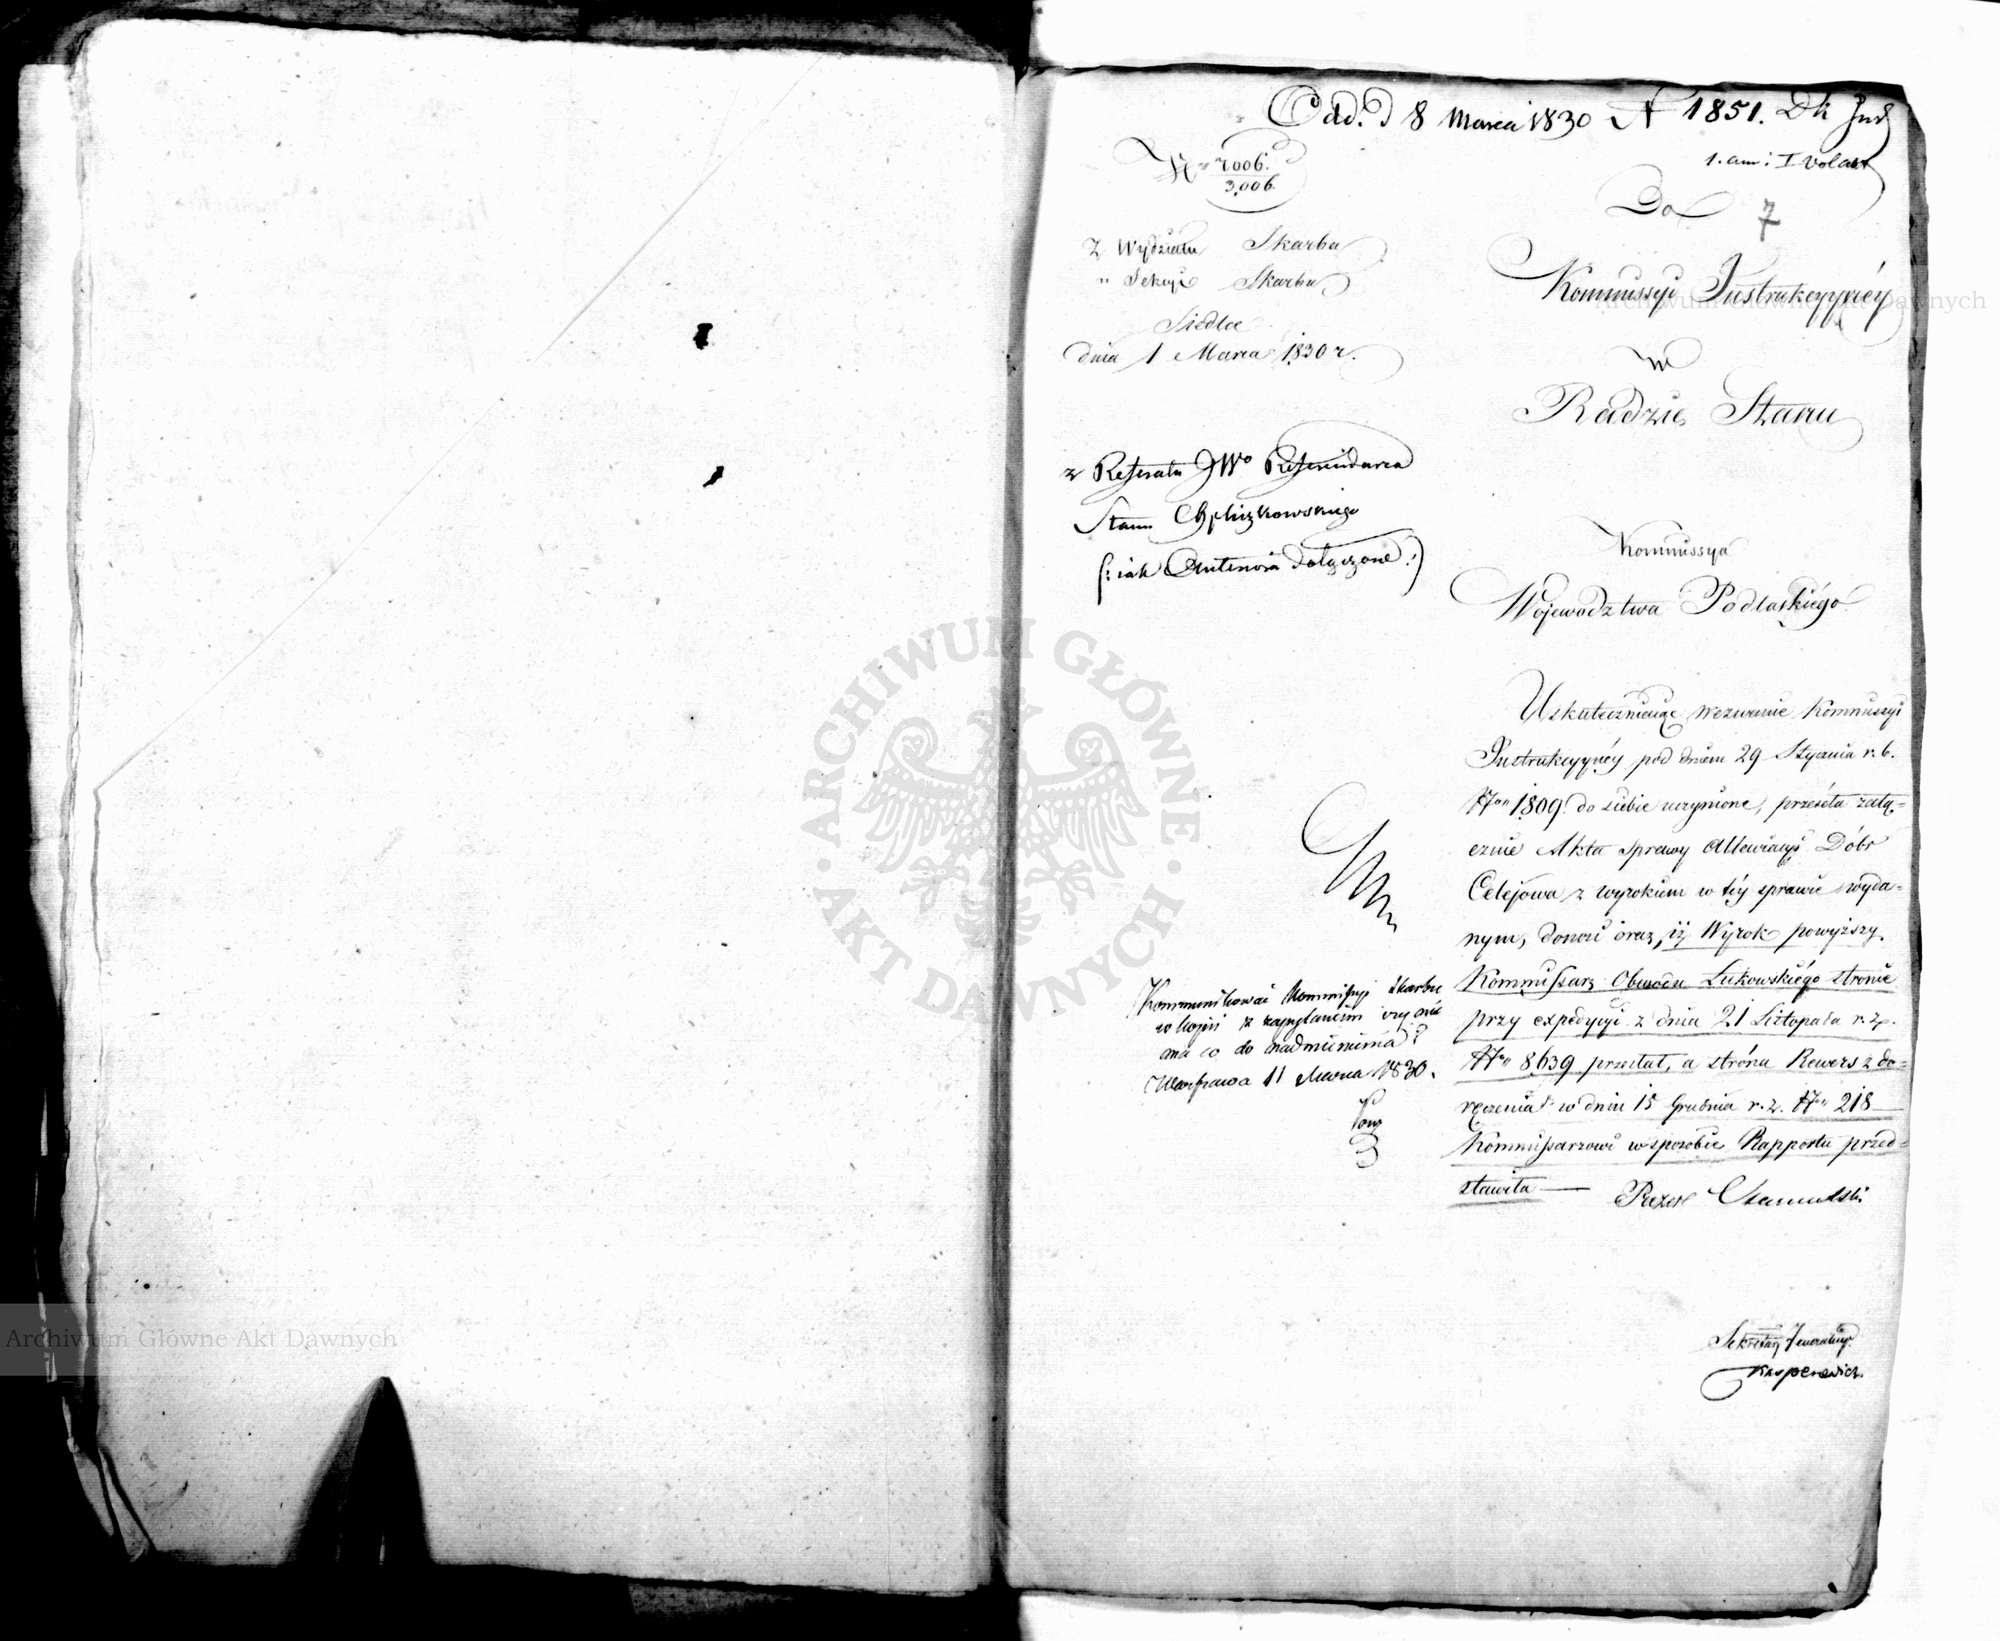 Odd. D 8 Marca 1830 N 1851. Dk
1. am: I vol akt
7
N° 2006.
3,006.
Z Wydziału Skarbu
" Sekcyi Skarbu
Siedlce
dnia 1 Marca 1830 r.
z Referatu JWo Referendarza
Stanu
(: iak Anteriora dołączone :)
Do
Kommissyi Instrukcyynéy
w
Radzie Stanu
Kommissya
Województwa Podlaskiégo
Uskuteczniaiąc wezwanie Kommissyi
Instrukcyynéy pod dniem 29 Stycznia r. b.
N° 1809 do siebie uczynione, przeséła załą=
cznie Akta sprawy Allewiacyi Dóbr
Celejowa z wyrokiem w téy sprawie wyda=
nym, donosi oraz, iż Wyrok powyższy
Kommissarz Obwodu Łukowskiégo stronie
przy expedycyi z dnia 21 Listopada r. z.
N° 8639 przesłał, a stróna Rewers z do=
ręczenia w dniu 15 Grudnia r. z. N° 218
Kommissarzowi w sposobie Rapportu przed=
stawiła — Prezes
Sekretarz Jeneralny
Kasperowicz
Kommunikować Kommissyi Skarbu
w kopii z zapytaniem czy nie
ma co do nadmienienia?
Warszawa 11 Marca 1830.
Archiwum Główne Akt Dawnych
Archiwum Główne Akt Dawnych
ARCHIWUM GŁÓWNE · AKT DAWNYCH ·